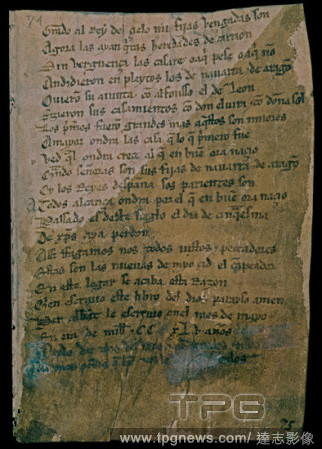 74
Grado al rey del çielo mis fijas vengadas son
Agora las ayan qtas heredades de carrion
Sin verguença las casare o aq pese o aq no
Andidieron en pleytos los de nauarra e de arago
Ouiero su aiunta co alfonsso el de leon
Fizieron sus casamientos co don eluira e co dona sol
Los pmos fuero grandes mas aqstos son miiores
A mayor ondra las casa q lo q pmero fue
Ved ql ondra creçe al q en bue ora naçio
Quando señoras son sus fijas de nauarra e de arago
Oy los Reyes despaña sos parientes son
A todos alcança ondra por el q en bue ora naçio
Passado es deste sieglo el dia de cinqesma
De xps aya perdon
Assi ffagamos nos todos iustos e peccadores
Estas son las nueuas de myo çid el canpeador
En este logar se acaba esta Razon
Quien escriuio este libro del dios parayso amen
Per abbat le escriuio en el mes de mayo
En era de mill e CC XLV años
TPG
www.tpgnews.com / 達志影像